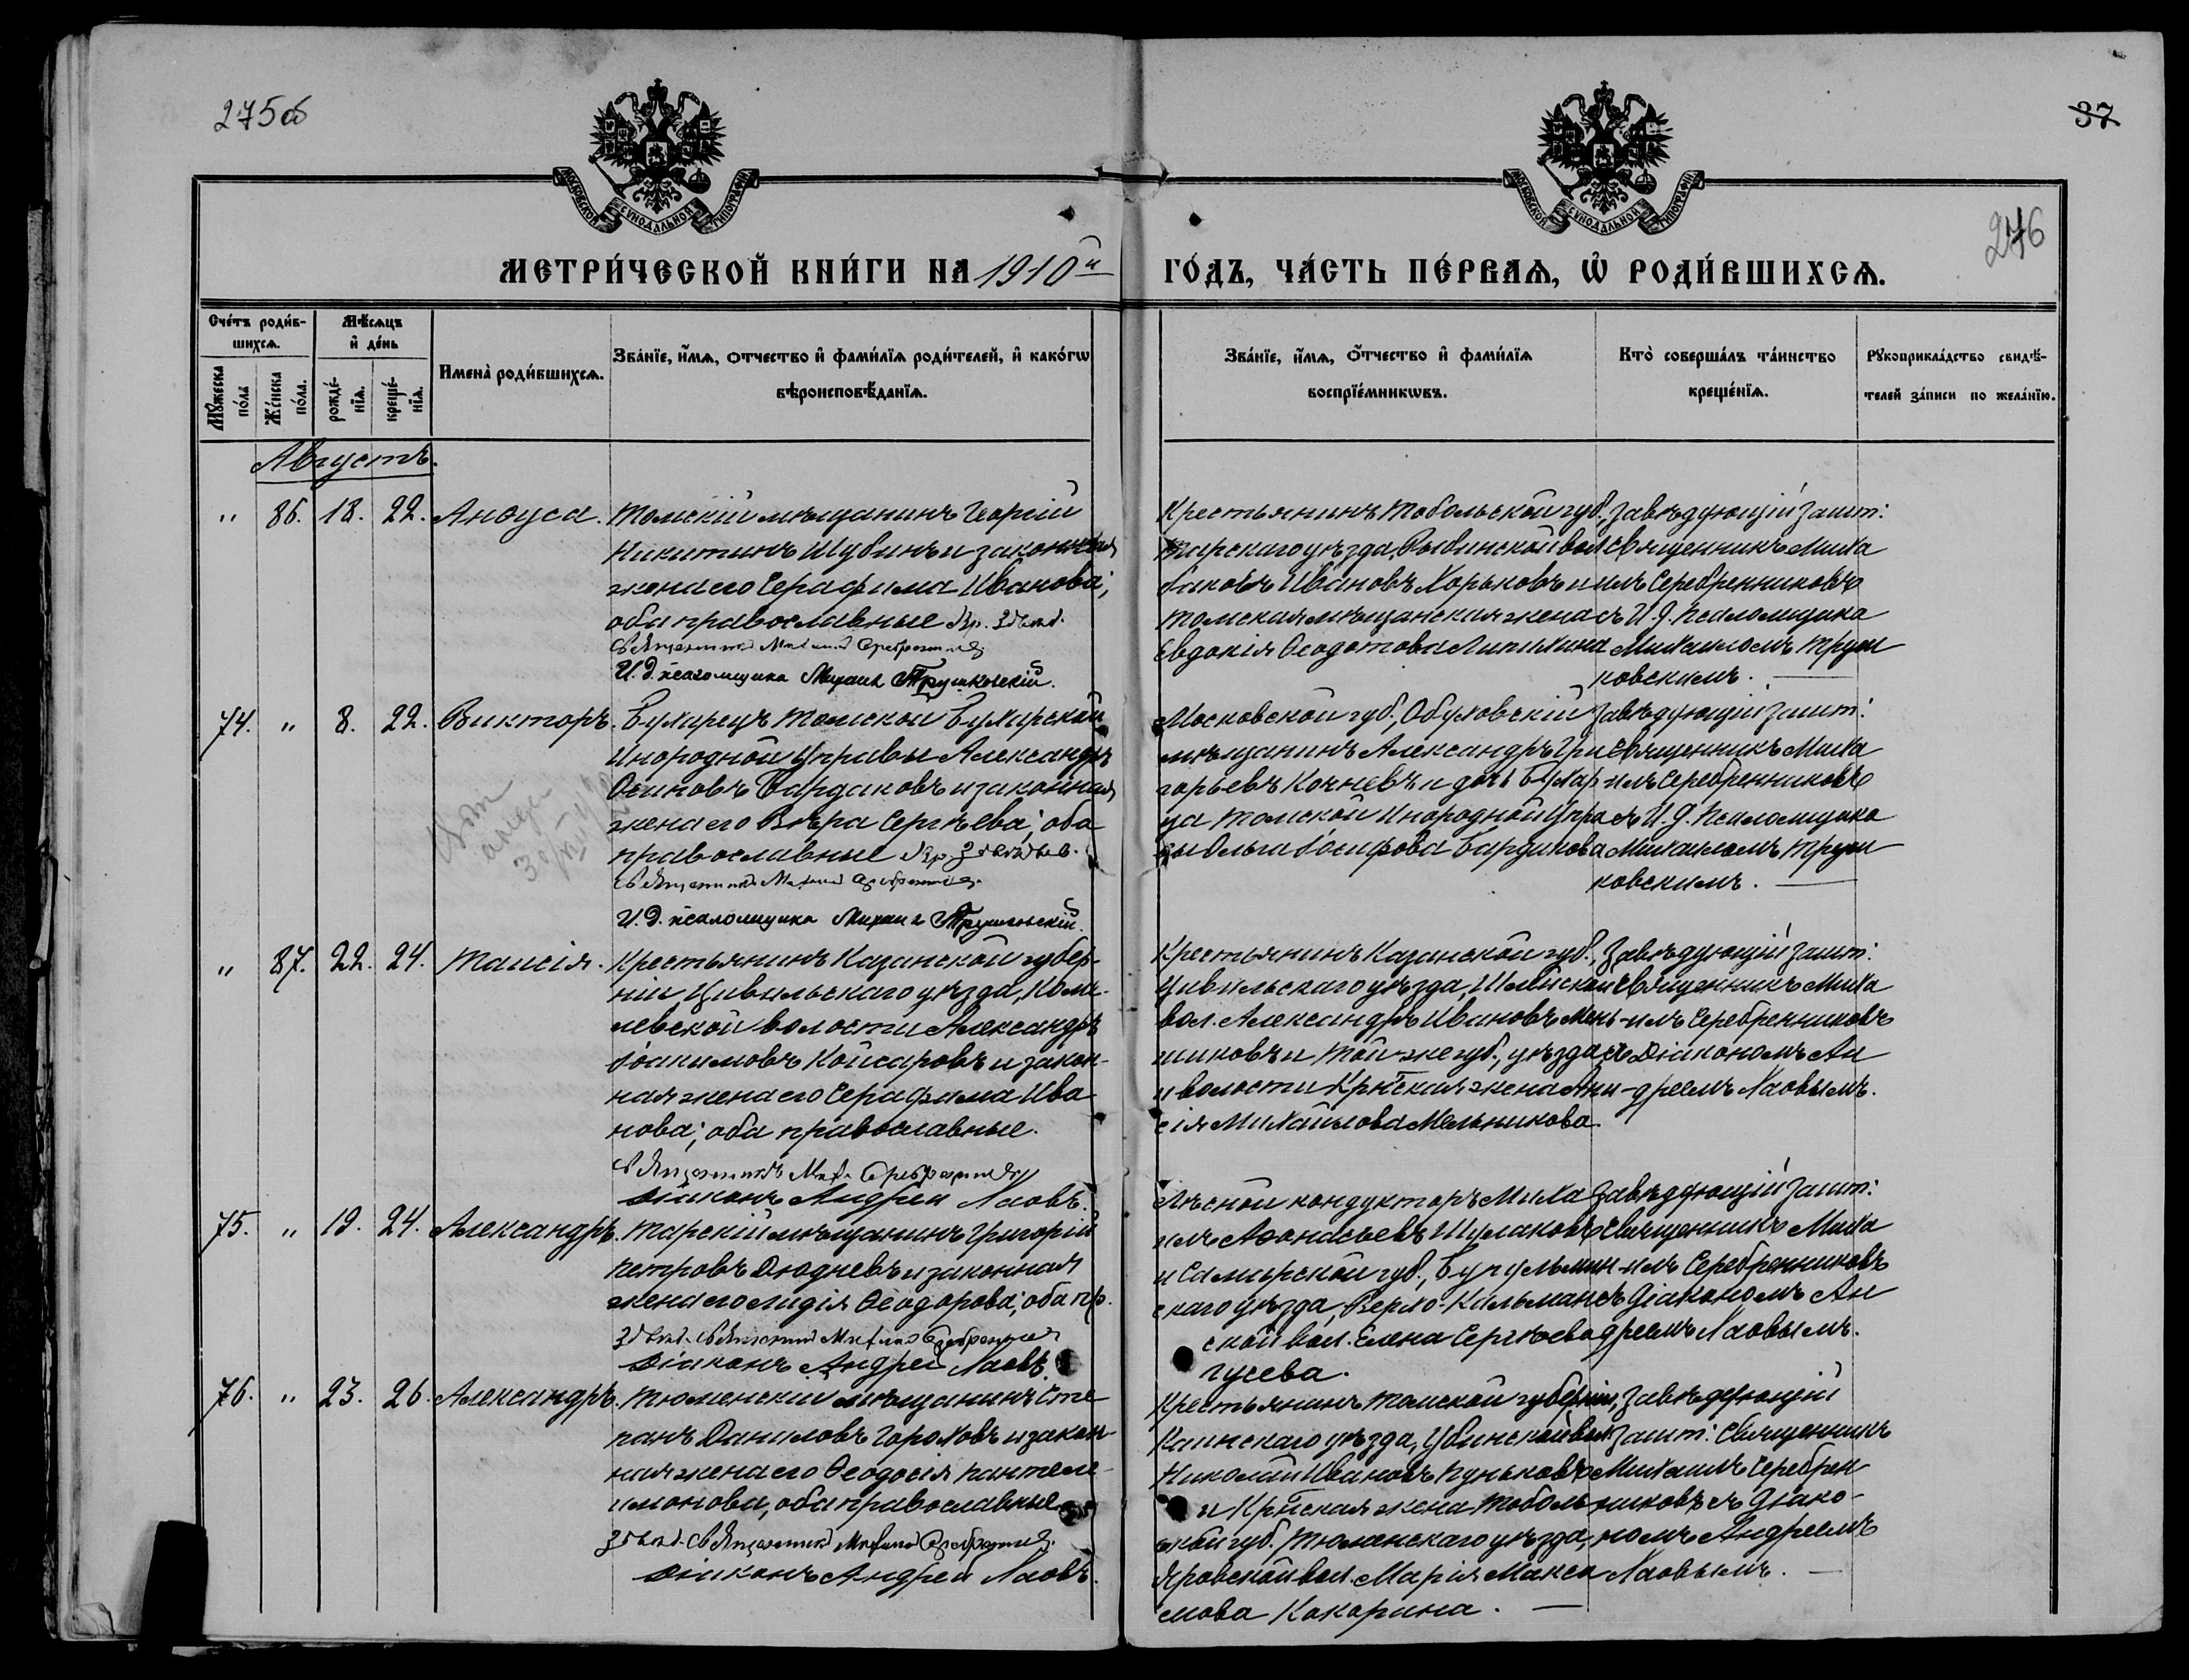 275об
37
276
МОСКОВСКОЙ СѴНОДАЛЬНОЙ ТИПОГРАФІИ
МОСКОВСКОЙ СѴНОДАЛЬНОЙ ТИПОГРАФІИ
МЕТРИ́ЧЕСКОЙ КНИ́ГИ НА 1910й
ГО́ДЪ, ЧА́СТЬ ПЕ́РВАѦ, Ѡ҆ РОДИ́ВШИХСѦ.
Сче́тъ роди́в-
шихсѧ.
Мѣ́сѧцъ
и҆ де́нь
Мꙋ́жеска по́ла
Же́нска по́ла.
рожде́-нїѧ.
креще́-нїѧ.
Имена̀ роди́вшихсѧ.
Зва́нїе, и҆́мѧ, ѻ҆́тчество и҆ фами́лїѧ роди́телей, и҆ како́гѡ
вѣроисповѣ́данїѧ.
Зва́нїе, и҆́мѧ, ѻ҆́тчество и҆ фами́лїѧ
воспрїе́мникѡвъ.
Кто̀ соверша́лъ та́инство
креще́нїѧ.
Рꙋкоприкла́дство свидѣ́-
телей за́писи по жела́нїю.
Августъ.
" 86. 18. 22. Анѳуса. Томскій мѣщанинъ Георгій
Никитинъ Шубинъ и законная
жена его Серафима Иванова;
оба православные
Священникъ Михаилъ Серебренниковъ
И. д. псаломщика Михаилъ Трушковскій.
Крестьянинъ Тобольской губ.,
Тарскаго уѣзда, Рыбинской вол
Іаковъ Ивановъ Хорьковъ и
томская мѣщанская жена
Евдокія Ѳеодотова Липихина
Завѣдующій зашт:
священникъ Миха
илъ Серебренниковъ
съ И. д. псаломщика
Михаиломъ Труш
ковскимъ.
74. " 8. 22. Викторъ. Бухарецъ Томской Бухарской
Инородной Управы Александръ
Осиповъ Бардаковъ и законная
жена его Вѣра Сергѣева; оба
православные
Священникъ Михаилъ Серебренниковъ
И. д. псаломщика Михаилъ Трушковскій.
Московской губ., Обуховскій
мѣщанинъ Александръ Гри
горьевъ Кочневъ и дочь Бухар
ца Томской Инородной Упра
вы Ольга Іосифова Бардакова
Завѣдующій зашт:
священникъ Миха
илъ Серебренниковъ
съ И. д. псаломщика
Михаиломъ Труш
ковскимъ.
" 87. 22. 24. Таисія. Крестьянинъ Казанской губер-
ніи, Цивильскаго уѣзда,
левской волости Александръ
Іоакимовъ Койсаровъ и закон-
ная жена его Серафима Ива
нова; оба православные.
Священникъ Мих. Серебренниковъ
Діаконъ Андрей Лаовъ.
Крестьянинъ Казанской губ.,
Цивильскаго уѣзда,
вол. Александръ Ивановъ Мень-
шиковъ и той же губ., уѣзда
и волости Кр-нская жена Ани
сія Михайлова Мельникова
Завѣдующій зашт:
священникъ Миха
илъ Серебренниковъ
съ Діакономъ Ан
дреемъ Лаовымъ.
75. " 19. 24. Александръ. Тарскій мѣщанинъ Григорій
Петровъ Дюдневъ и законная
жена его Лидія Ѳеодорова; оба пр.
Священникъ Михаилъ Серебренниковъ
Діаконъ Андрей Лаовъ
Лѣсной кондукторъ Миха
илъ Аѳанасьевъ Шулаковъ
и Самарской губ., Бугульмин
скаго уѣзда, Верхо-Кальман
ской вол. Елена Сергѣева
Гусева.
Завѣдующій зашт:
священникъ Миха
илъ Серебренниковъ
съ Діакономъ Ан
дреемъ Лаовымъ.
76. " 23. 26. Александръ. Тюменскій мѣщанинъ Сте
панъ Даниловъ Гороховъ и закон-
ная жена его Ѳеодосія Пантеле-
имонова, оба православные
Священникъ Михаилъ Серебренниковъ
Діаконъ Андрей Лаовъ.
Крестьянинъ Томской губерніи,
Каинскаго уѣзда, Убинской вол
Николай Ивановъ Пуньковъ
и Кр-нская жена Тоболь
ской губ. Тюменскаго уѣзда,
Яровской вол. Марія Макси
мова Кокорина.
Завѣдующій
зашт: Священникъ
Михаилъ Серебрен
никовъ съ Діако-
номъ Андреемъ
Лаовымъ.